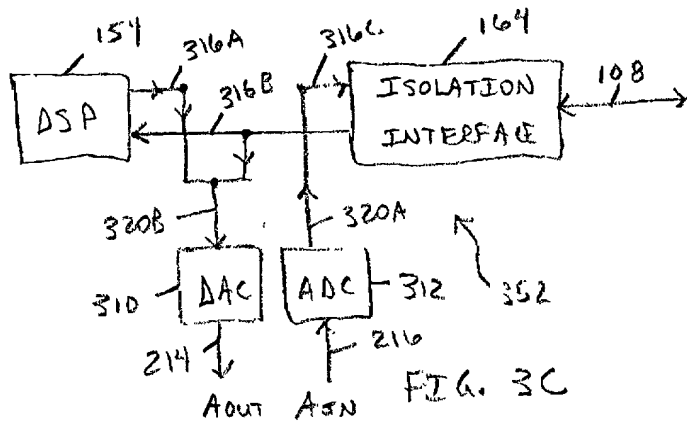 154
316A
316C
164
DSP
316B
ISOLATION
INTERFACE
108
320B
320A
310
DAC
ADC
312
352
214
216
AOUT
AIN
FIG. 3C